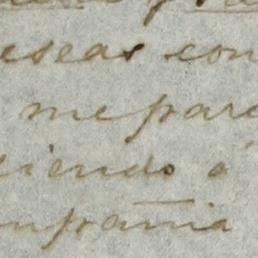 eseas con
me pare
iendo á
mpañia